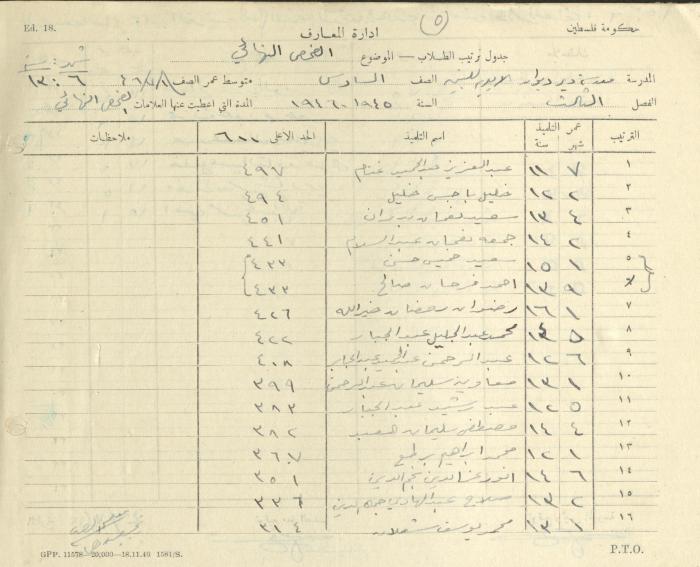 Ed. 18.
٥
ادارة المعارف
حكومة فلسطين
جدول ترتيب الطلاب — الموضوع الفحص النهائي
المدرسة مدرسة دير ديوان الاميرية للبنين الصف السادس متوسط عمر الصف
الفصل الثالث السنة ١٩٤٥-١٩٤٦ المدة التي اعطيت عنها العلامات الفحص النهائي
الترتيب عمر التلميذ شهر سنة اسم التلميذ الحد الاعلى ٦٠٠ ملاحظات
١ ٧ ١١ عبد العزيز عبد الحميد غنام ٤٩٧
٢ ٢ ١٢ خليل ياسين خليل ٤٩٤
٣ ٤ ١٣ سعيد نعمان بدران ٤٥١
٤ ٢ ١٤ جمعه نعمان عبد السلام ٤٤١
٥ ١ ١٥ سعيد خميس حسن ٤٣٣
٩ ١٣ احمد فرحان صالح ٤٣٣
٧ ١ ١٦ رضوان رمضان خير الله ٤٢٦
٨ ٥ محمد عبد الجليل عبد الجبار ٤٢٢
٩ ٦ ١٢ عبد الرحمن عبد الجبار ٤٠٨
١٠ ١ ١٣ معاوية سليمان عبد الرحمن ٣٩٩
١١ ٥ ١٢ رشيد عبد الجبار ٣٨٣
١٢ ٤ ١٤ مصطفى سليمان ٣٨٢
١٣ ١ ١٢ محمد ابراهيم ٣٦٧
١٤ ٦ ١٤ انور عز الدين نجم الدين ٣٥١
١٥ ٢ ١٣ صلاح عبد الهادي نجم الدين ٣٣٦
١٦ ١ ١٣ محمد يوسف شعلان ٣٣٤
GPP. 11578—20,000—18.11.40 1581/S.
P.T.O.